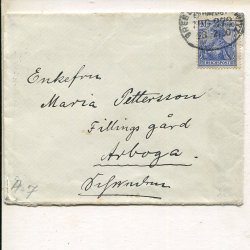 Enkefru
Maria Pettersson
Fillings gård
Arboga
Schweden